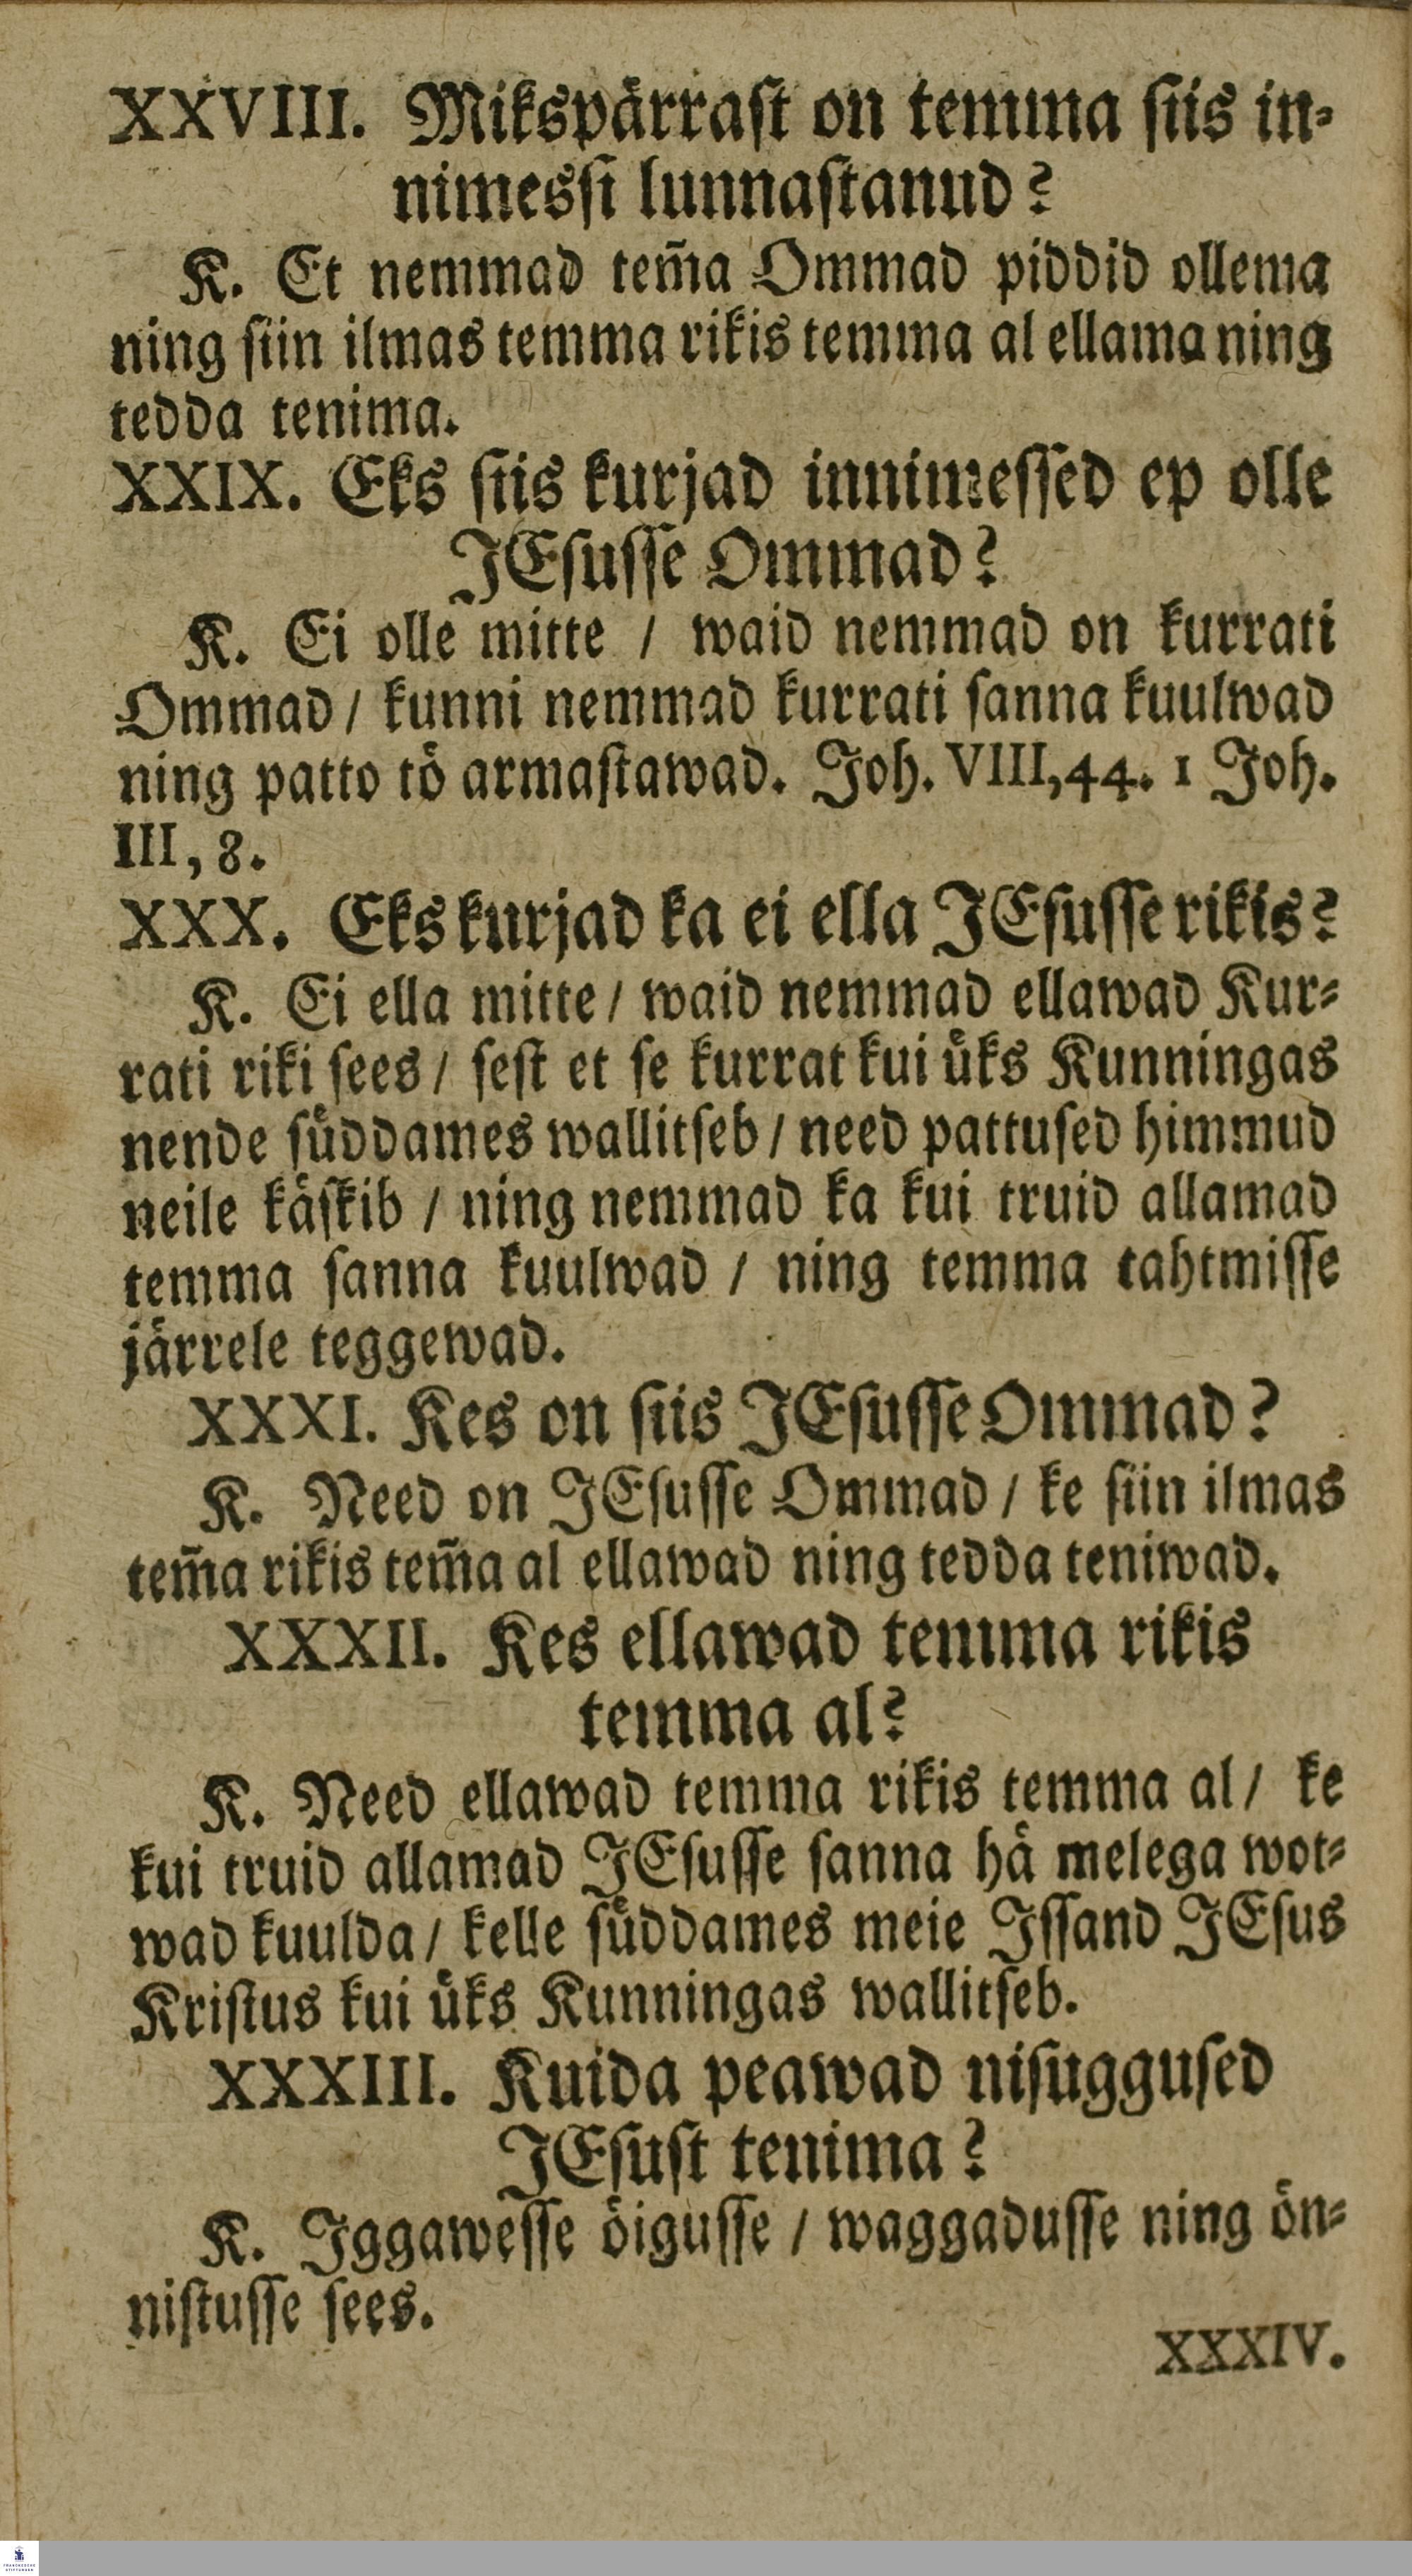 XXVIII. Mikspärraſt on temma ſiis in⸗
nimesſi lunnaſtanud?
K. Et nemmad tem̃a Ommad piddid ollema
ning ſiin ilmas temma rikis temma al ellama ning
tedda tenima.
XXIX. Eks ſiis kurjad innimeſſed ep olle
JEſuſſe Ommad?
K. Ei olle mitte / waid nemmad on kurrati
Ommad / kunni nemmad kurrati ſanna kuulwad
ning patto tö armaſtawad. Joh. VIII, 44. 1 Joh.
III, 8.
XXX. Eks kurjad ka ei ella JEſuſſe rikis?
K. Ei ella mitte / waid nemmad ellawad Kur⸗
rati riki ſees / ſeſt et ſe kurrat kui üks Kunningas
nende ſüddames wallitſeb / need pattuſed himmud
neile käſkib / ning nemmad ka kui truid allamad
temma ſanna kuulwad / ning temma tahtmiſſe
järrele teggewad.
XXXI. Kes on ſiis JEſuſſe Ommad?
K. Need on JEſuſſe Ommad / ke ſiin ilmas
tem̃a rikis tem̃a al ellawad ning tedda teniwad.
XXXII. Kes ellawad temma rikis
temma al?
K. Need ellawad temma rikis temma al / ke
kui truid allamad JEſuſſe ſanna hä melega wot⸗
wad kuulda / kelle ſüddames meie Jſſand JEſus
Kriſtus kui üks Kunningas wallitſeb.
XXXIII. Kuida peawad niſugguſed
JEſuſt tenima?
K. Jggaweſſe öiguſſe / waggaduſſe ning ön⸗
niſtuſſe ſees.
XXXIV.
FRANCKESCHE
STIFTUNGEN